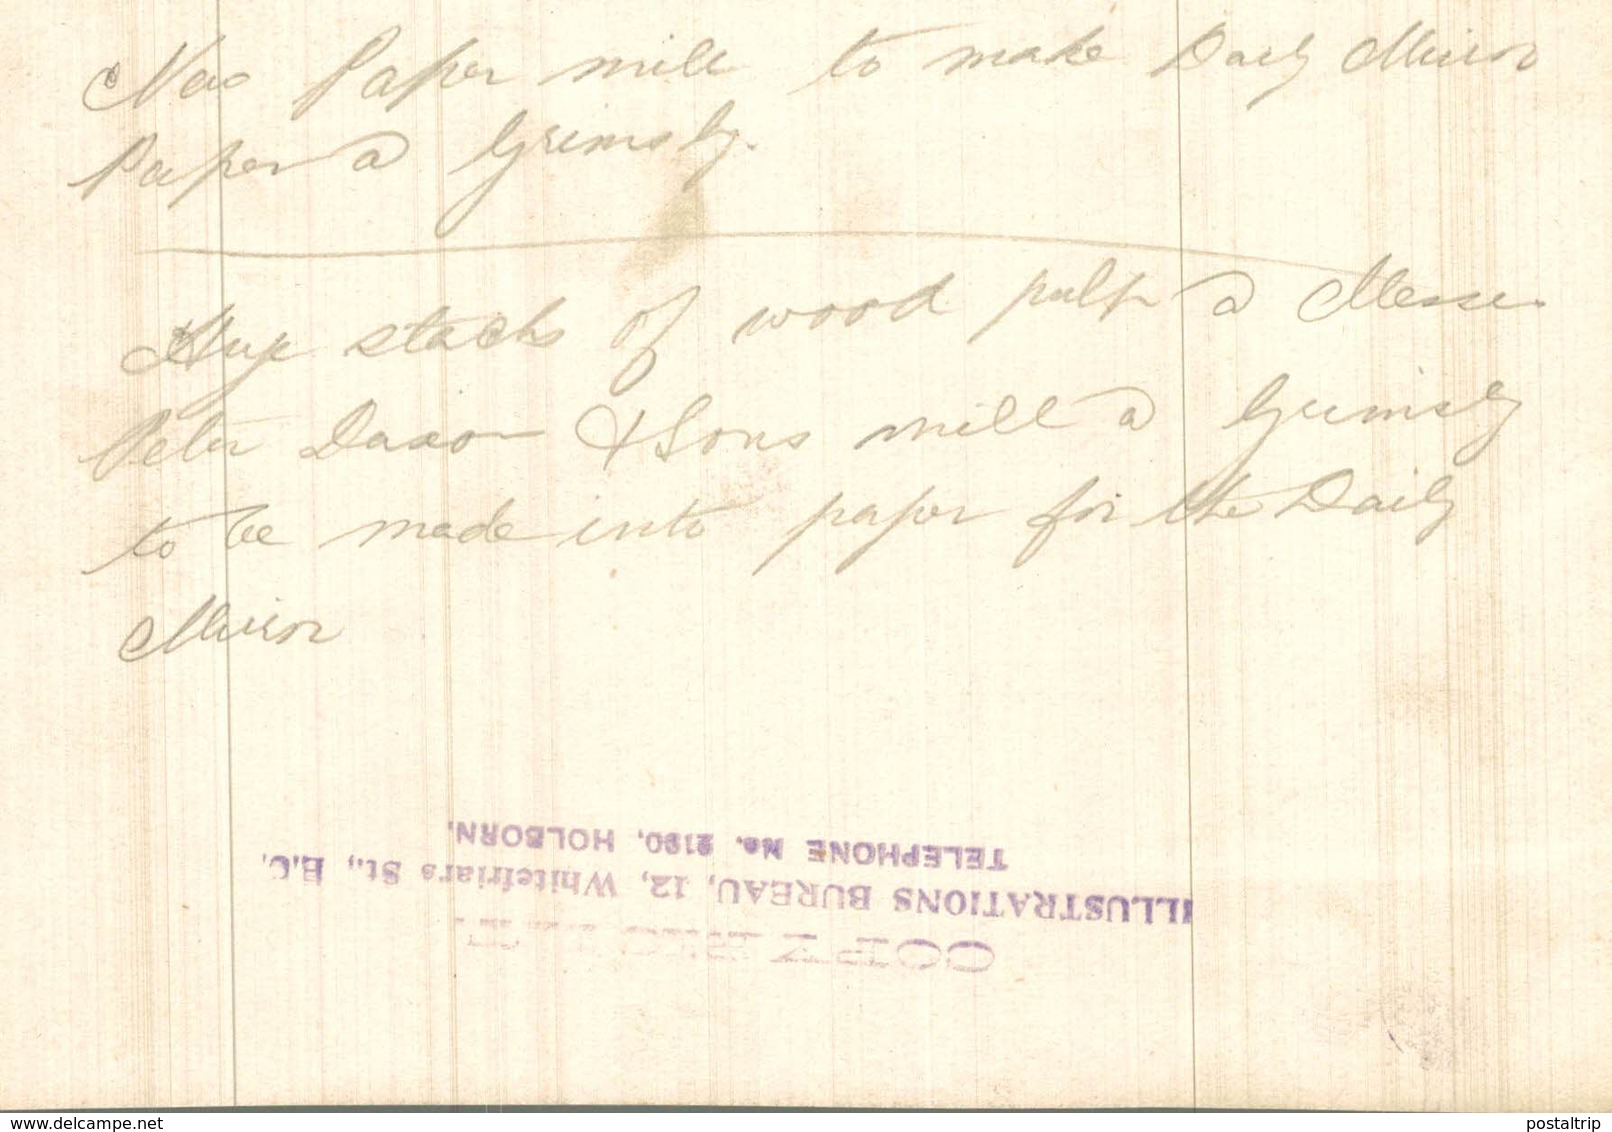 New Paper mill to make Daily Mirror
Paper @ Grimsby.
Huge stacks of wood pulp @ Messrs.
Peter Dixon & Sons mill @ Grimsby
to be made into paper for the Daily
Mirror
COPYRIGHT
ILLUSTRATIONS BUREAU, 12, Whitefriars St., E.C.
TELEPHONE No. 2190, HOLBORN.
www.delcampe.net
postaltrip